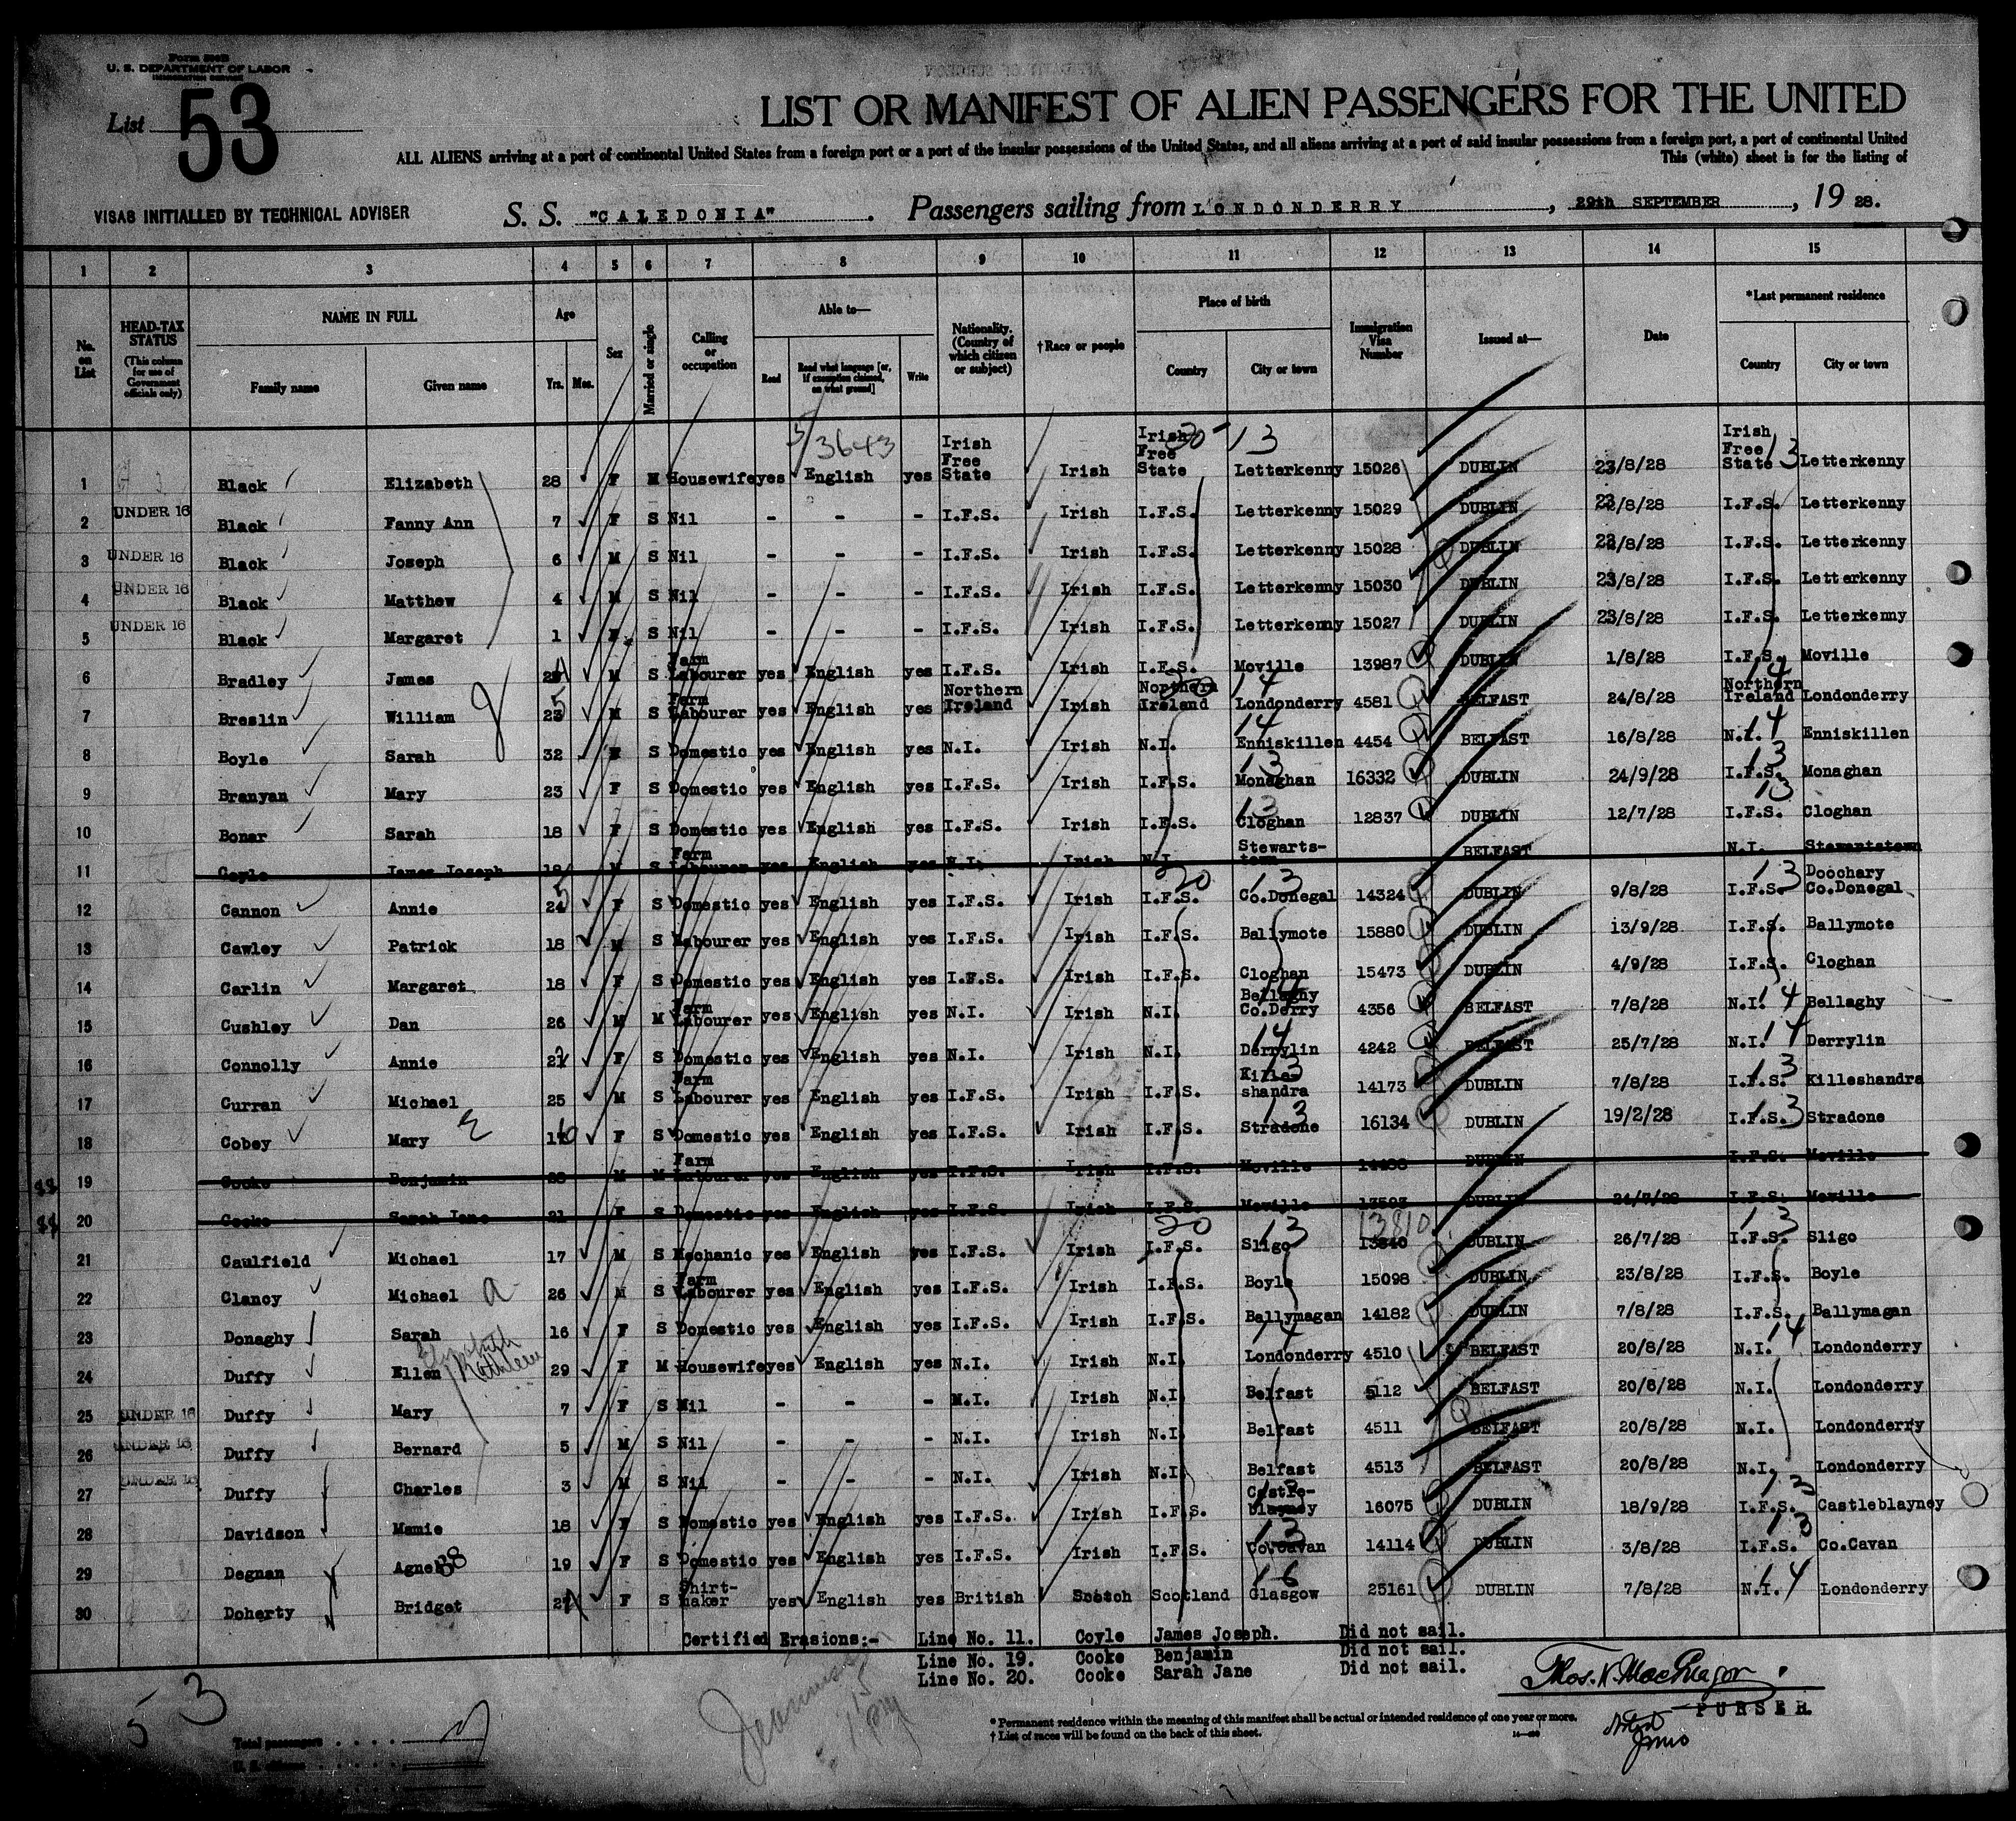 Form 500B
U. S. DEPARTMENT OF LABOR
IMMIGRATION SERVICE
List 53
LIST OR MANIFEST OF ALIEN PASSENGERS FOR THE UNITED
ALL ALIENS arriving at a port of continental United States from a foreign port or a port of the insular possessions of the United States, and all aliens arriving at a port of said insular possessions from a foreign port, a port of continental United
This (white) sheet is for the listing of
VISAS INITIALLED BY TECHNICAL ADVISER
S. S. "CALEDONIA" . Passengers sailing from LONDONDERRY , 29th SEPTEMBER , 19 28.
1 2 3 4 5 6 7 8 9 10 11 12 13 14 15
No. on List
HEAD-TAX STATUS (This column for use of Government officials only)
NAME IN FULL Family name Given name
Age Yrs. Mos.
Sex
Married or single
Calling or occupation
Able to— Read Read what language [or, if exemption claimed, on what ground] Write
Nationality. (Country of which citizen or subject)
†Race or people
Place of birth Country City or town
Immigration Visa Number
Issued at—
Date
*Last permanent residence Country City or town
5/3643 30- 13
1 Black Elizabeth 28 F M Housewife yes English yes Irish Free State Irish Irish Free State Letterkenny 15026 DUBLIN 23/8/28 Irish Free State 13 Letterkenny
2 UNDER 16 Black Fanny Ann 7 F S Nil - - - I.F.S. Irish I.F.S. Letterkenny 15029 DUBLIN 23/8/28 I.F.S. Letterkenny
3 UNDER 16 Black Joseph 6 M S Nil - - - I.F.S. Irish I.F.S. Letterkenny 15028 DUBLIN 23/8/28 I.F.S. Letterkenny
4 UNDER 16 Black Matthew 4 M S Nil - - - I.F.S. Irish I.F.S. Letterkenny 15030 DUBLIN 23/8/28 I.F.S. Letterkenny
5 UNDER 16 Black Margaret 1 F S Nil - - - I.F.S. Irish I.F.S. Letterkenny 15027 DUBLIN 23/8/28 I.F.S. Letterkenny
6 Bradley James M S Farm Labourer yes English yes I.F.S. Irish I.F.S. Moville 13987 DUBLIN 1/8/28 I.F.S. Moville
7 Breslin William 23 5 M S Farm Labourer yes English yes Northern Ireland Irish Northern Ireland 14 Londonderry 4581 BELFAST 24/8/28 Northern Ireland 4 Londonderry
8 Boyle Sarah 32 F S Domestic yes English yes N.I. Irish N.I. 14 Enniskillen 4454 BELFAST 16/8/28 N.I. 4 Enniskillen
9 Branyan Mary 23 F S Domestic yes English yes I.F.S. Irish I.F.S. 13 Monaghan 16332 DUBLIN 24/9/28 I.F.S. 13 Monaghan
10 Bonar Sarah 18 F S Domestic yes English yes I.F.S. Irish I.F.S. 13 Cloghan 12837 DUBLIN 12/7/28 I.F.S. 13 Cloghan
11 Coyle James Joseph 18 M S Farm Labourer yes English yes N.I. Irish N.I. Stewarts-town BELFAST N.I. Stewartstown
12 Cannon Annie 24 5 F S Domestic yes English yes I.F.S. Irish I.F.S. 20 13 Co.Donegal 14324 DUBLIN 9/8/28 I.F.S. 13 Doochary Co.Donegal
13 Cawley Patrick 18 M S Labourer yes English yes I.F.S. Irish I.F.S. Ballymote 15880 DUBLIN 13/9/28 I.F.S. Ballymote
14 Carlin Margaret 18 F S Domestic yes English yes I.F.S. Irish I.F.S. Cloghan 15473 DUBLIN 4/9/28 I.F.S. Cloghan
15 Cushley Dan 26 M M Farm Labourer yes English yes N.I. Irish N.I. 14 Bellaghy Co.Derry 4356 BELFAST 7/8/28 N.I. 14 Bellaghy
16 Connolly Annie F S Domestic yes English yes N.I. Irish N.I. 14 Derrylin 4242 BELFAST 25/7/28 N.I. 14 Derrylin
17 Curran Michael 25 M S Farm Labourer yes English yes I.F.S. Irish I.F.S. 13 Kille-shandra 14173 DUBLIN 7/8/28 I.F.S. 13 Killeshandra
18 Cobey Mary E F S Domestic yes English yes I.F.S. Irish I.F.S. 13 Stradone 16134 DUBLIN 19/2/28 I.F.S. 13 Stradone
19 Cooke Benjamin 28 M M Farm Labourer yes English yes I.F.S. Irish I.F.S. Moville 14488 DUBLIN I.F.S. Moville
20 Cooke Sarah Jane 21 F S Domestic yes English yes I.F.S. Irish I.F.S. Moville 13593 DUBLIN 24/7/28 I.F.S. Moville
21 Caulfield Michael 17 M S Mechanic yes English yes I.F.S. Irish I.F.S. 20 13 Sligo 13840 13810 DUBLIN 26/7/28 I.F.S. 13 Sligo
22 Clancy Michael a 26 M S Farm Labourer yes English yes I.F.S. Irish I.F.S. Boyle 15098 DUBLIN 23/8/28 I.F.S. Boyle
23 Donaghy Sarah 16 F S Domestic yes English yes I.F.S. Irish I.F.S. Ballymagan 14182 DUBLIN 7/8/28 I.F.S. Ballymagan
24 Duffy Ellen Elizabeth Kathleen 29 F M Housewife yes English yes N.I. Irish N.I. 14 Londonderry 4510 BELFAST 20/8/28 N.I. 14 Londonderry
25 UNDER 16 Duffy Mary 7 F S Nil - - - N.I. Irish N.I. Belfast 5112 BELFAST 20/8/28 N.I. Londonderry
26 UNDER 16 Duffy Bernard 5 M S Nil - - - N.I. Irish N.I. Belfast 4511 BELFAST 20/8/28 N.I. Londonderry
27 UNDER 16 Duffy Charles 3 M S Nil - - - N.I. Irish N.I. Belfast 4513 BELFAST 20/8/28 N.I. Londonderry
28 Davidson Mamie 18 F S Domestic yes English yes I.F.S. Irish I.F.S. 13 Castle-blayney 16075 DUBLIN 18/9/28 I.F.S. 13 Castleblayney
29 Degnan Agnes 19 F S Domestic yes English yes I.F.S. Irish I.F.S. 13 Co.Cavan 14114 DUBLIN 3/8/28 I.F.S. 13 Co.Cavan
30 Doherty Bridget F S Shirt-maker yes English yes British Scotch Scotland 16 Glasgow 25161 DUBLIN 7/8/28 N.I. 14 Londonderry
Certified Erasions:- Line No. 11. Coyle James Joseph. Did not sail.
Line No. 19. Cooke Benjamin Did not sail.
Line No. 20. Cooke Sarah Jane Did not sail.
Thos. N. MacGregor
PURSER.
5 3
Total passengers
U. S. citizens
* Permanent residence within the meaning of this manifest shall be actual or intended residence of one year or more.
† List of races will be found on the back of this sheet.